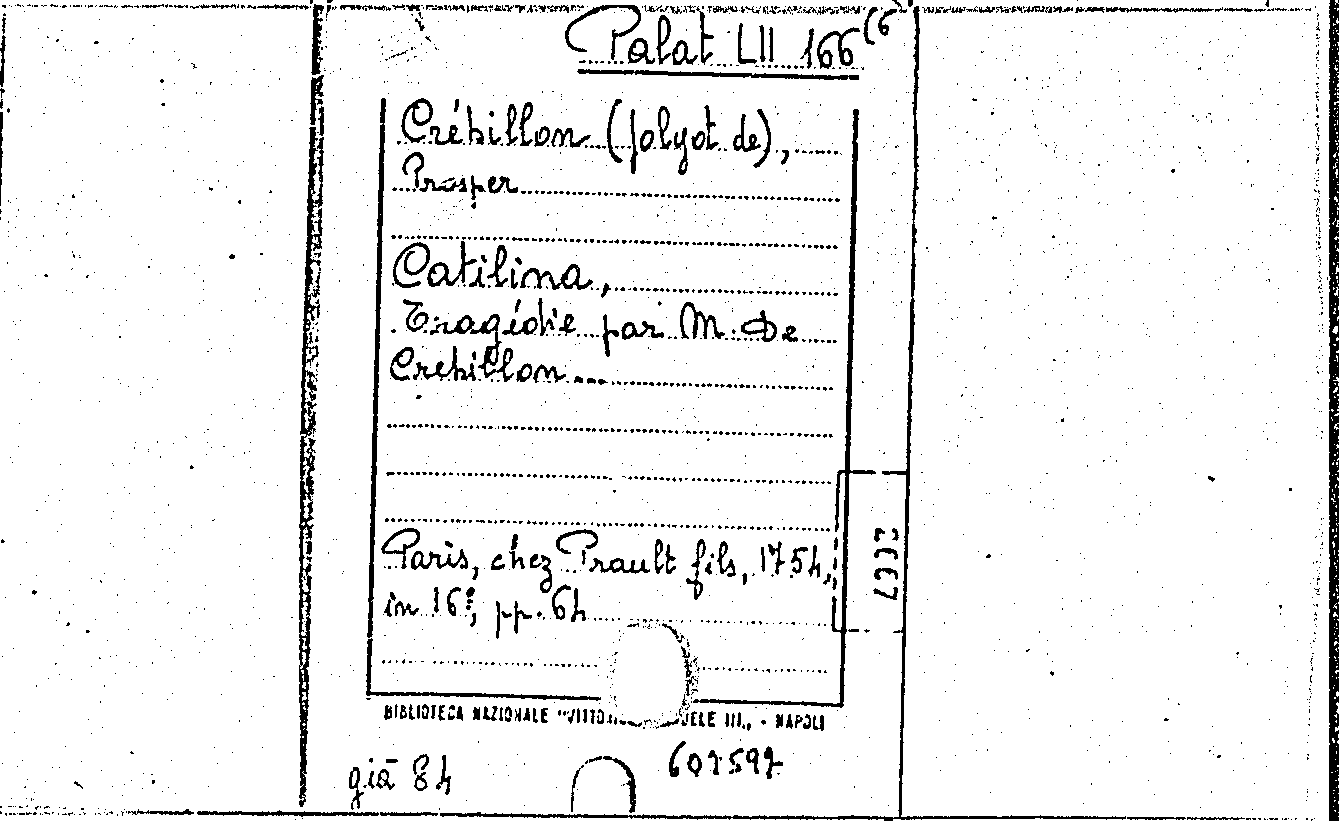 Palat LII 166(6
Crébillon (Jolyot de),
Prosper
Catilina,
Tragédie par M. De
Crebillon...
Paris, chez Prault fils, 1754,
in 16°, pp. 64
BIBLIOTECA NAZIONALE "VITTO UELE III„ - NAPOLI
già 84